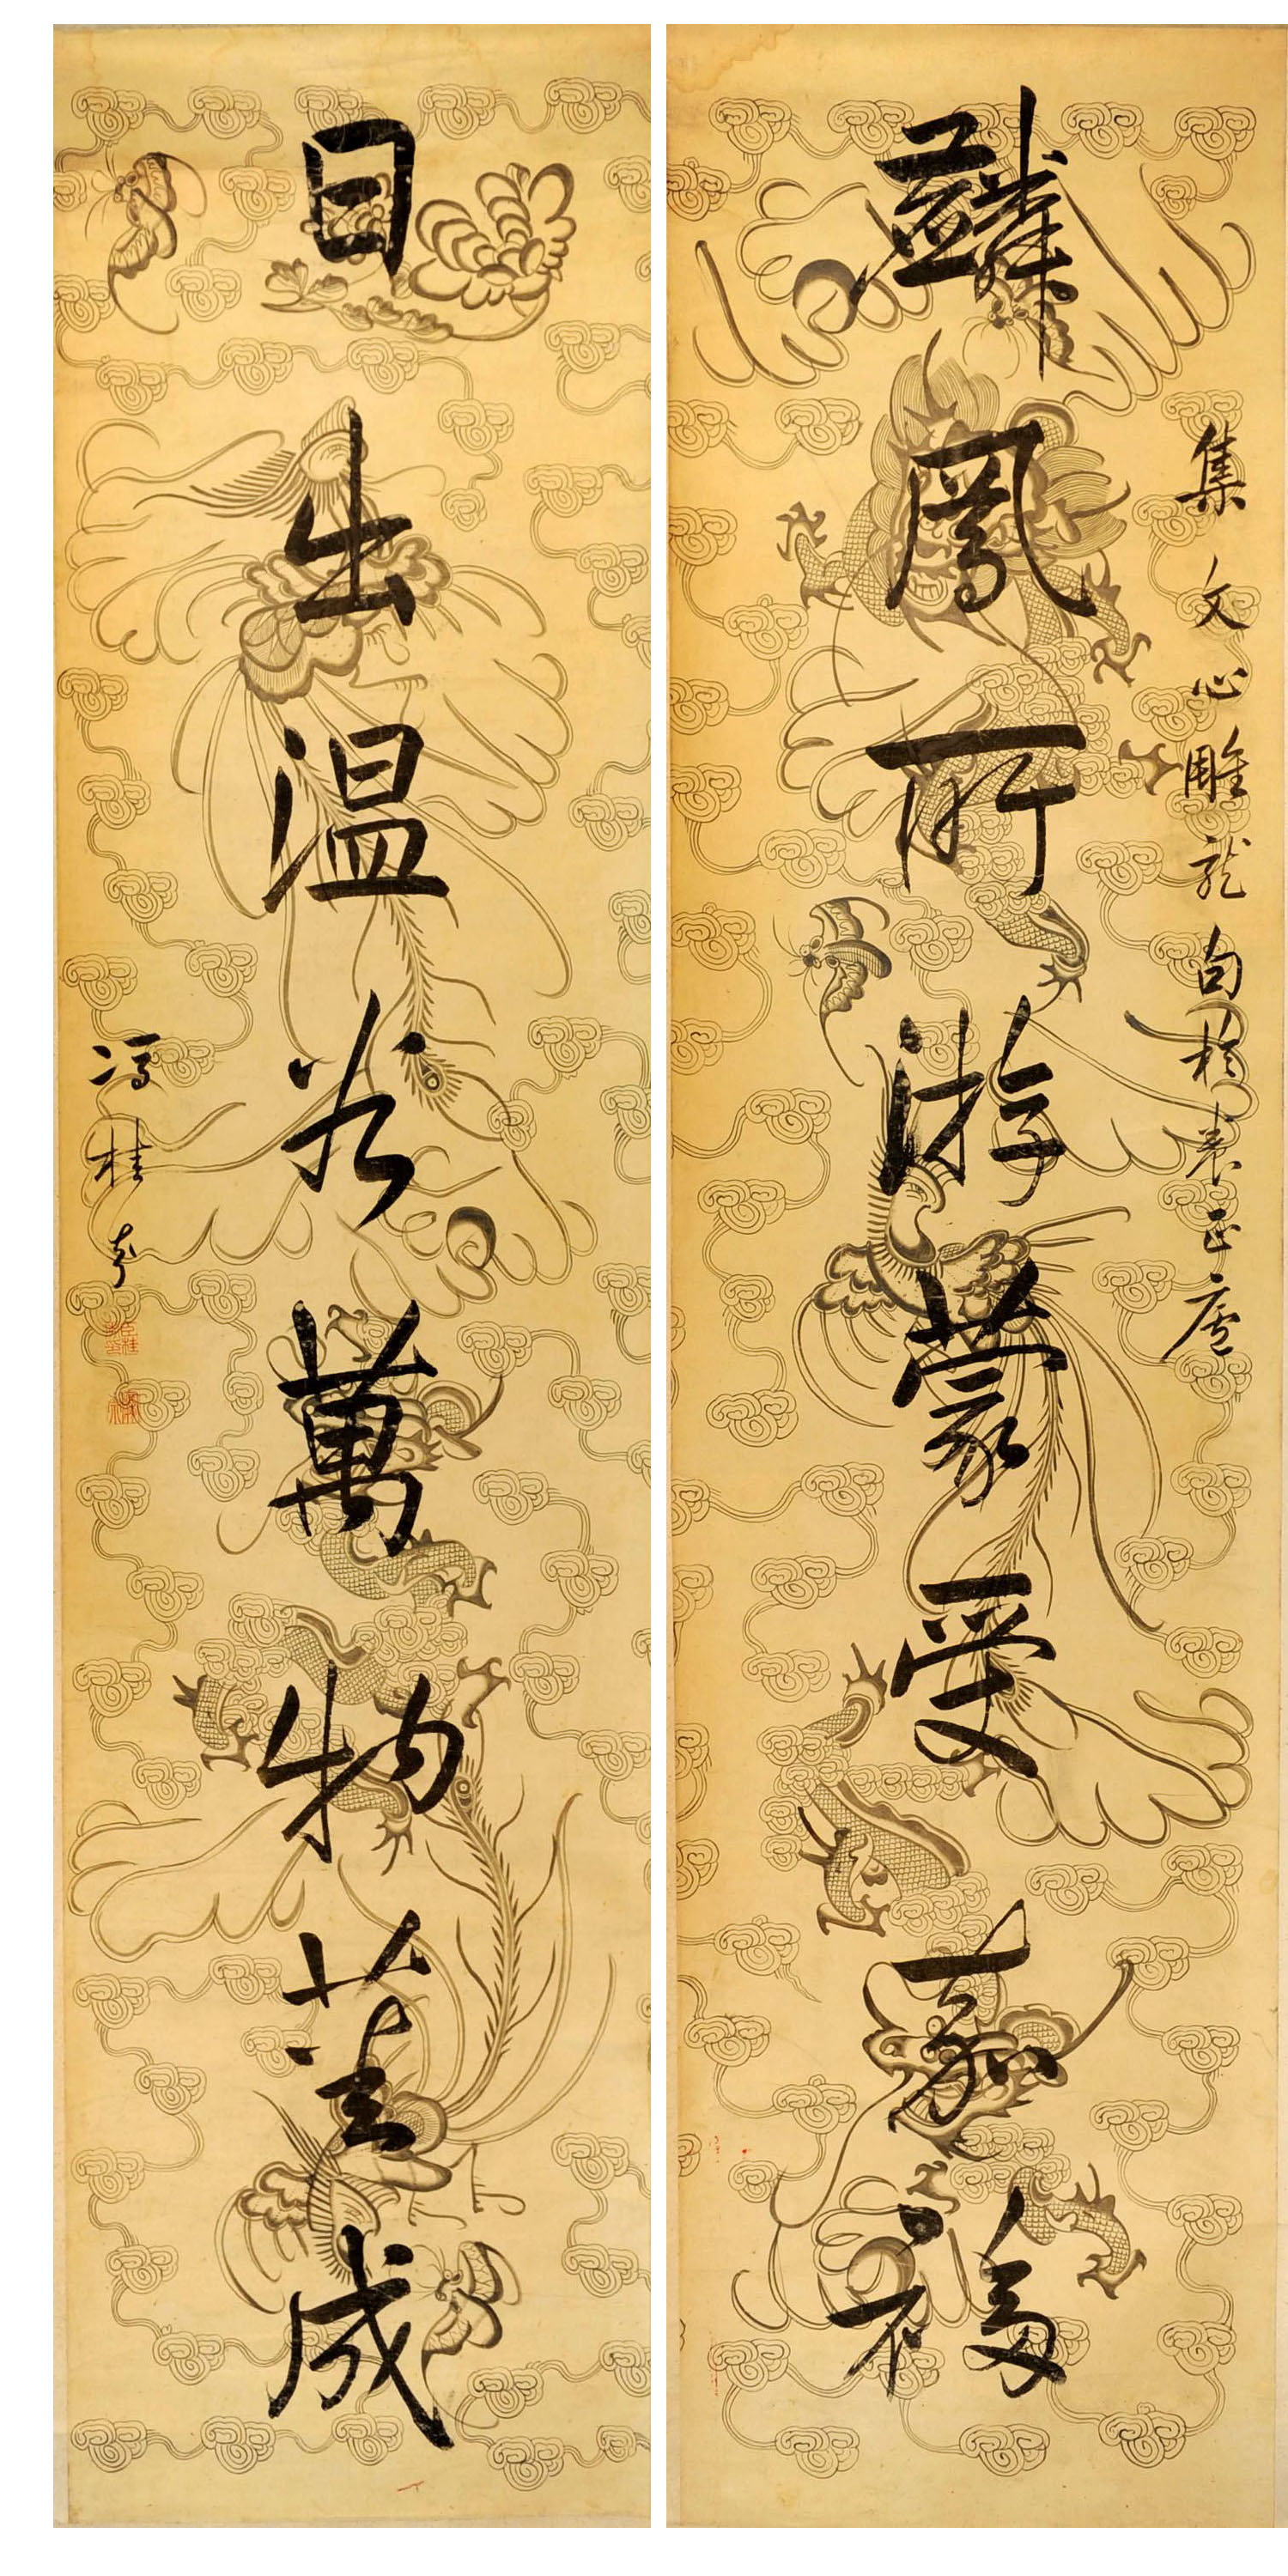 麟鳳所游蒙受嘉福
集文心雕龍句於養正廬
日出温谷萬物成
馮桂芬